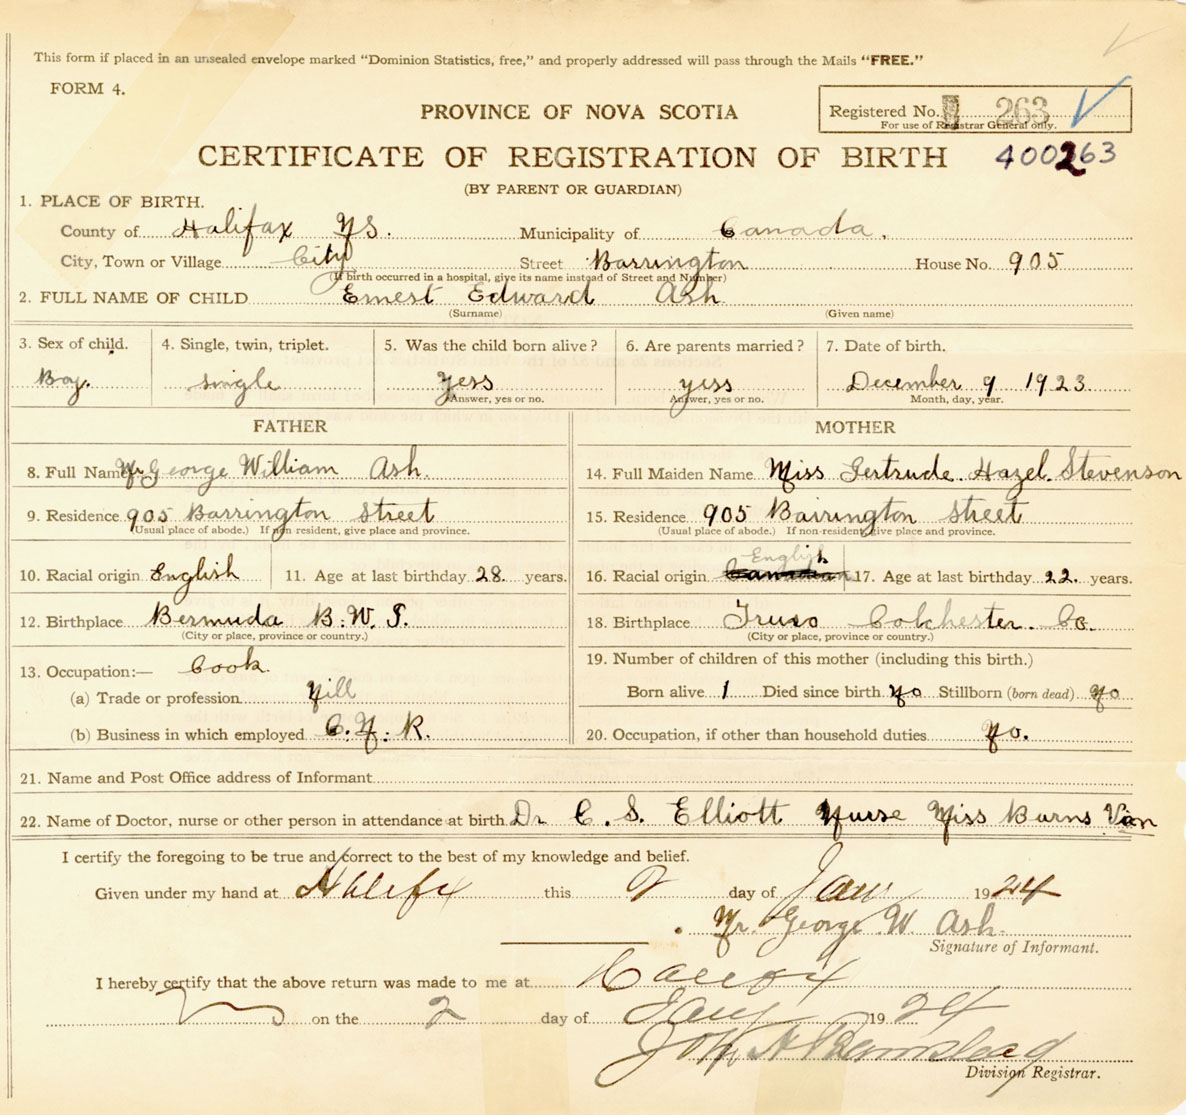 This form if placed in an unsealed envelope marked "Dominion Statistics, free," and properly addressed will pass through the Mails "FREE."
FORM 4.
PROVINCE OF NOVA SCOTIA
Registered No. 263
For use of Registrar General only.
CERTIFICATE OF REGISTRATION OF BIRTH 400263
(BY PARENT OR GUARDIAN)
1. PLACE OF BIRTH.
County of Halifax NS. Municipality of Canada.
City, Town or Village City Street Barrington House No. 905
(If birth occurred in a hospital, give its name instead of Street and Number)
2. FULL NAME OF CHILD Ernest Edward Ash
(Surname) (Given name)
3. Sex of child. 4. Single, twin, triplet. 5. Was the child born alive? 6. Are parents married? 7. Date of birth.
Boy. single Yess yess December 9 1923
Answer, yes or no. Answer, yes or no. Month, day, year.
FATHER MOTHER
8. Full Name Mr George William Ash. 14. Full Maiden Name Miss Gertrude. Hazel. Stevenson
9. Residence 905 Barrington Street 15. Residence 905 Barrington Street
(Usual place of abode.) If non-resident, give place and province. (Usual place of abode.) If non-resident, give place and province.
English
10. Racial origin English 11. Age at last birthday 28. years. 16. Racial origin Canadian 17. Age at last birthday 22. years.
12. Birthplace Bermuda B.W.I. 18. Birthplace Truro Colchester. Co.
(City or place, province or country.) (City or place, province or country.)
13. Occupation:— Cook. 19. Number of children of this mother (including this birth.)
(a) Trade or profession Nill Born alive 1 Died since birth No Stillborn (born dead) No
(b) Business in which employed C.N.R. 20. Occupation, if other than household duties No.
21. Name and Post Office address of Informant
22. Name of Doctor, nurse or other person in attendance at birth Dr C. S. Elliott Nurse Miss Burns Von
I certify the foregoing to be true and correct to the best of my knowledge and belief.
Given under my hand at Halifx this 2 day of Jan 1924
Mr. George W. Ash.
Signature of Informant.
I hereby certify that the above return was made to me at Halifax
on the 2 day of Jany 1924
John A
Division Registrar.